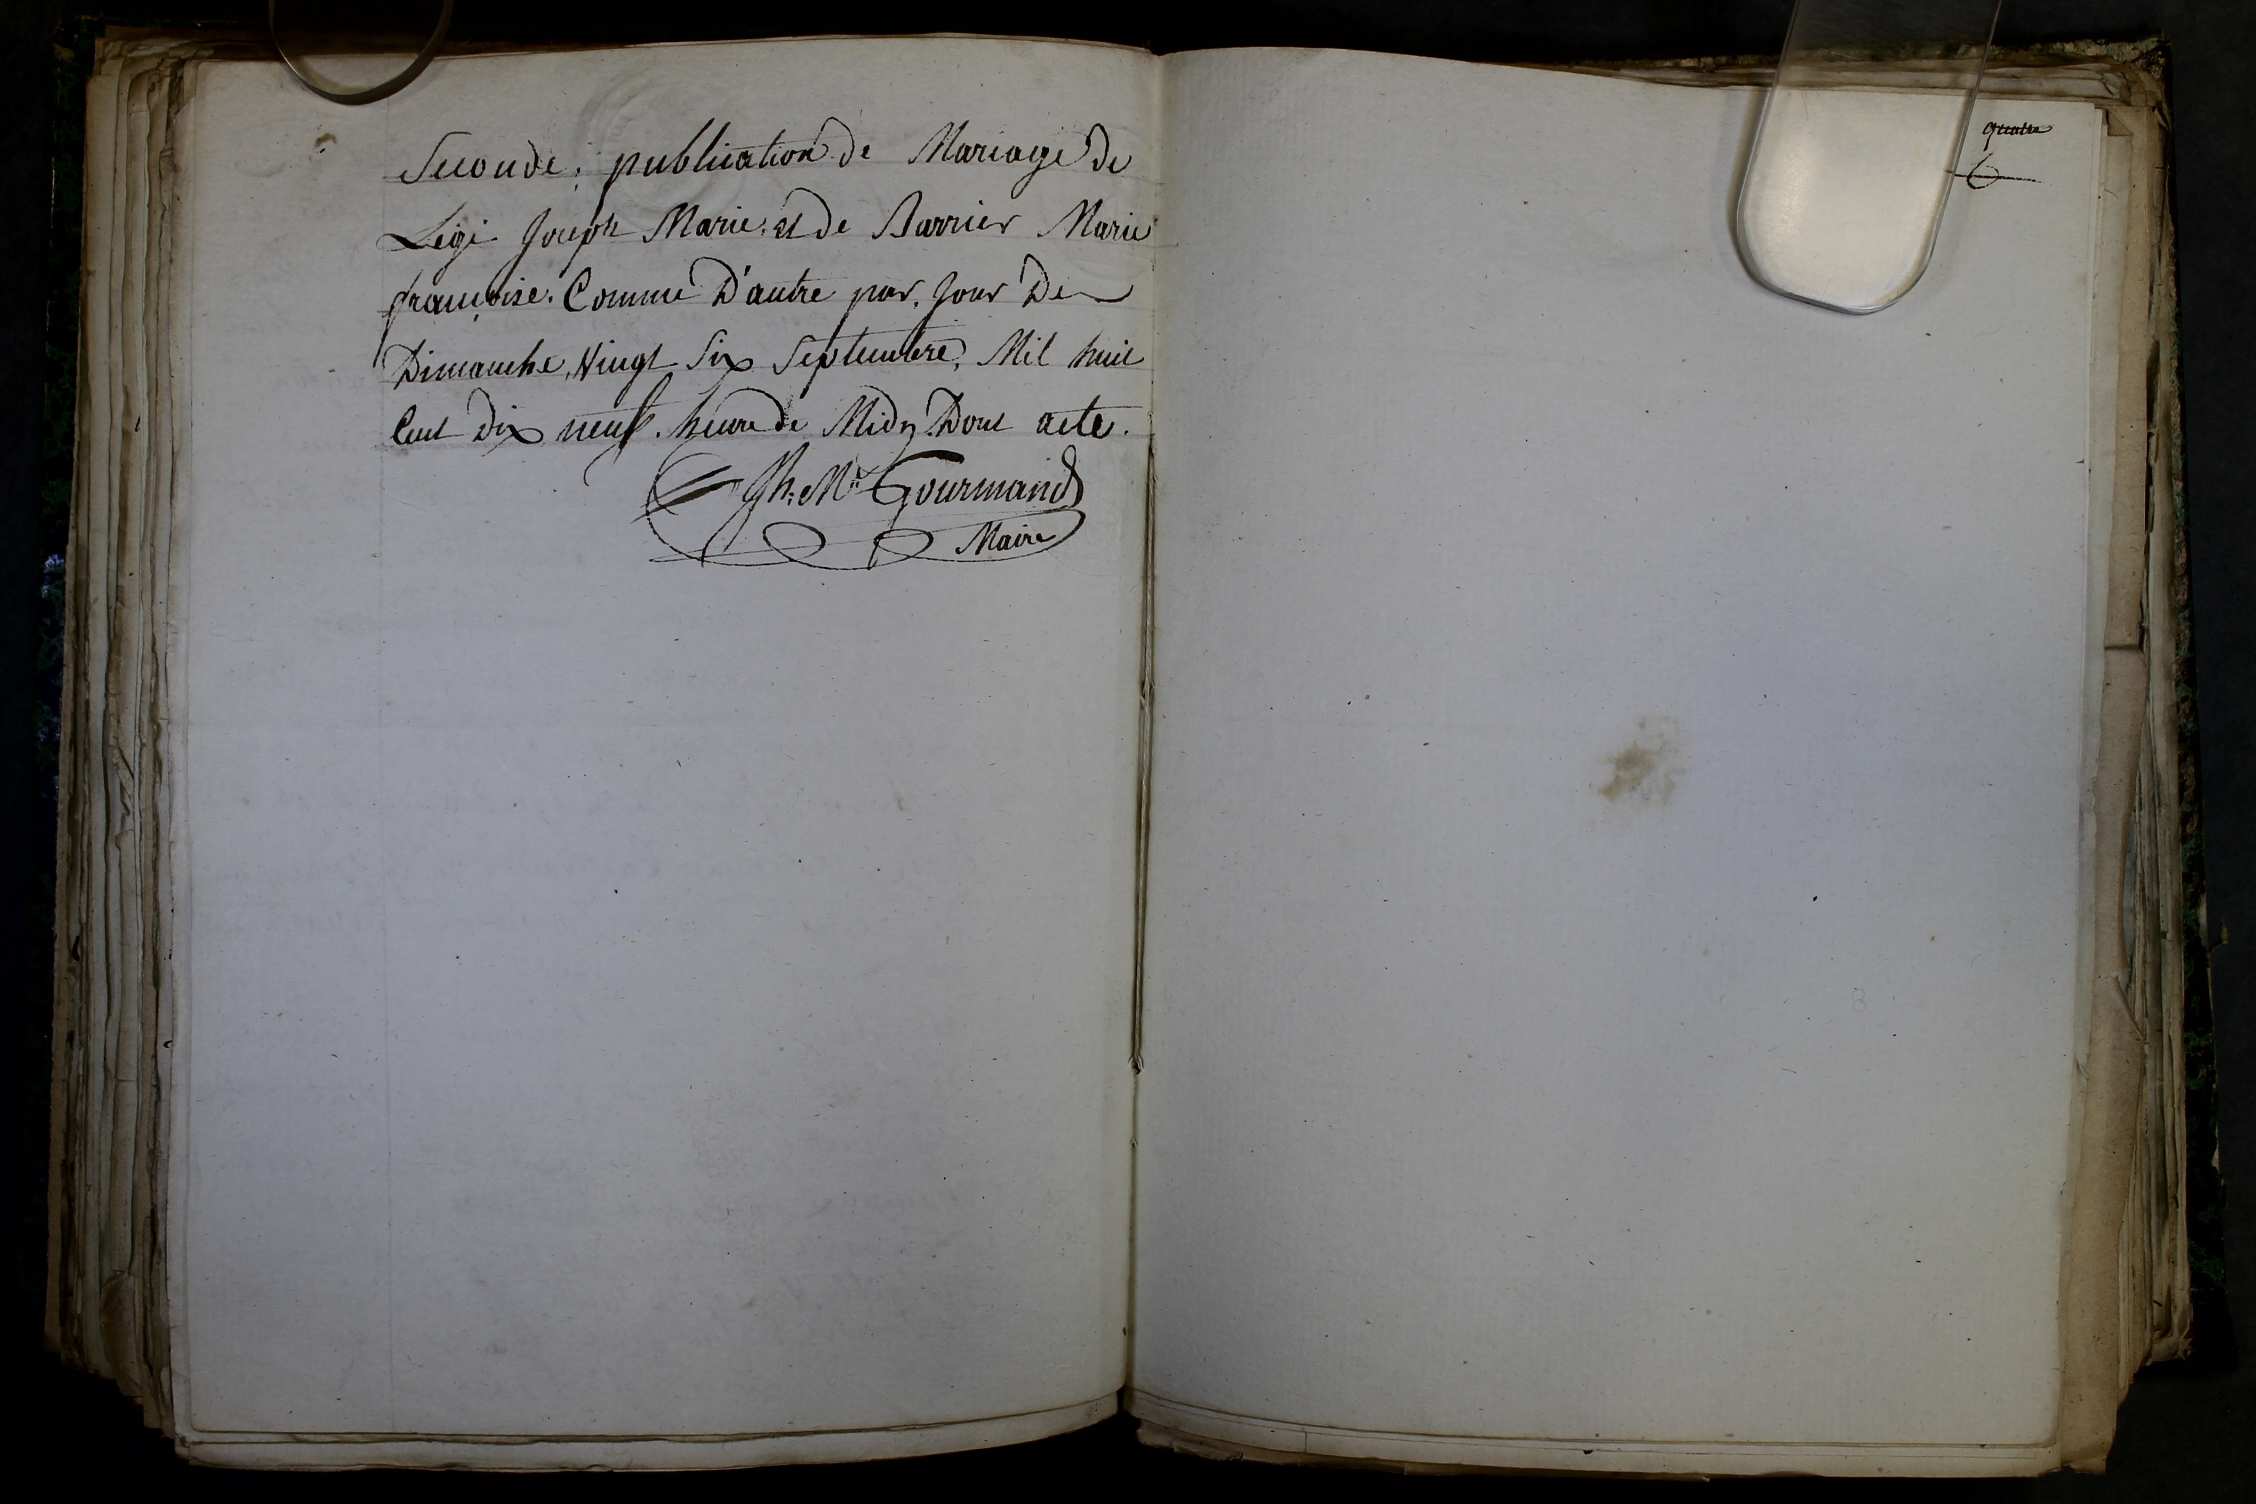 Seconde. publication de Mariage de
Legé Joseph Marie. et de Barrier Marie
françoise. Comme D'autre par. Jour De
Dimanche, Vingt Six Septembre. Mil huit
Cent Dix neuf. heure de Midy Dont acte.
Jh. Mie Gourmand
Maire
quatre